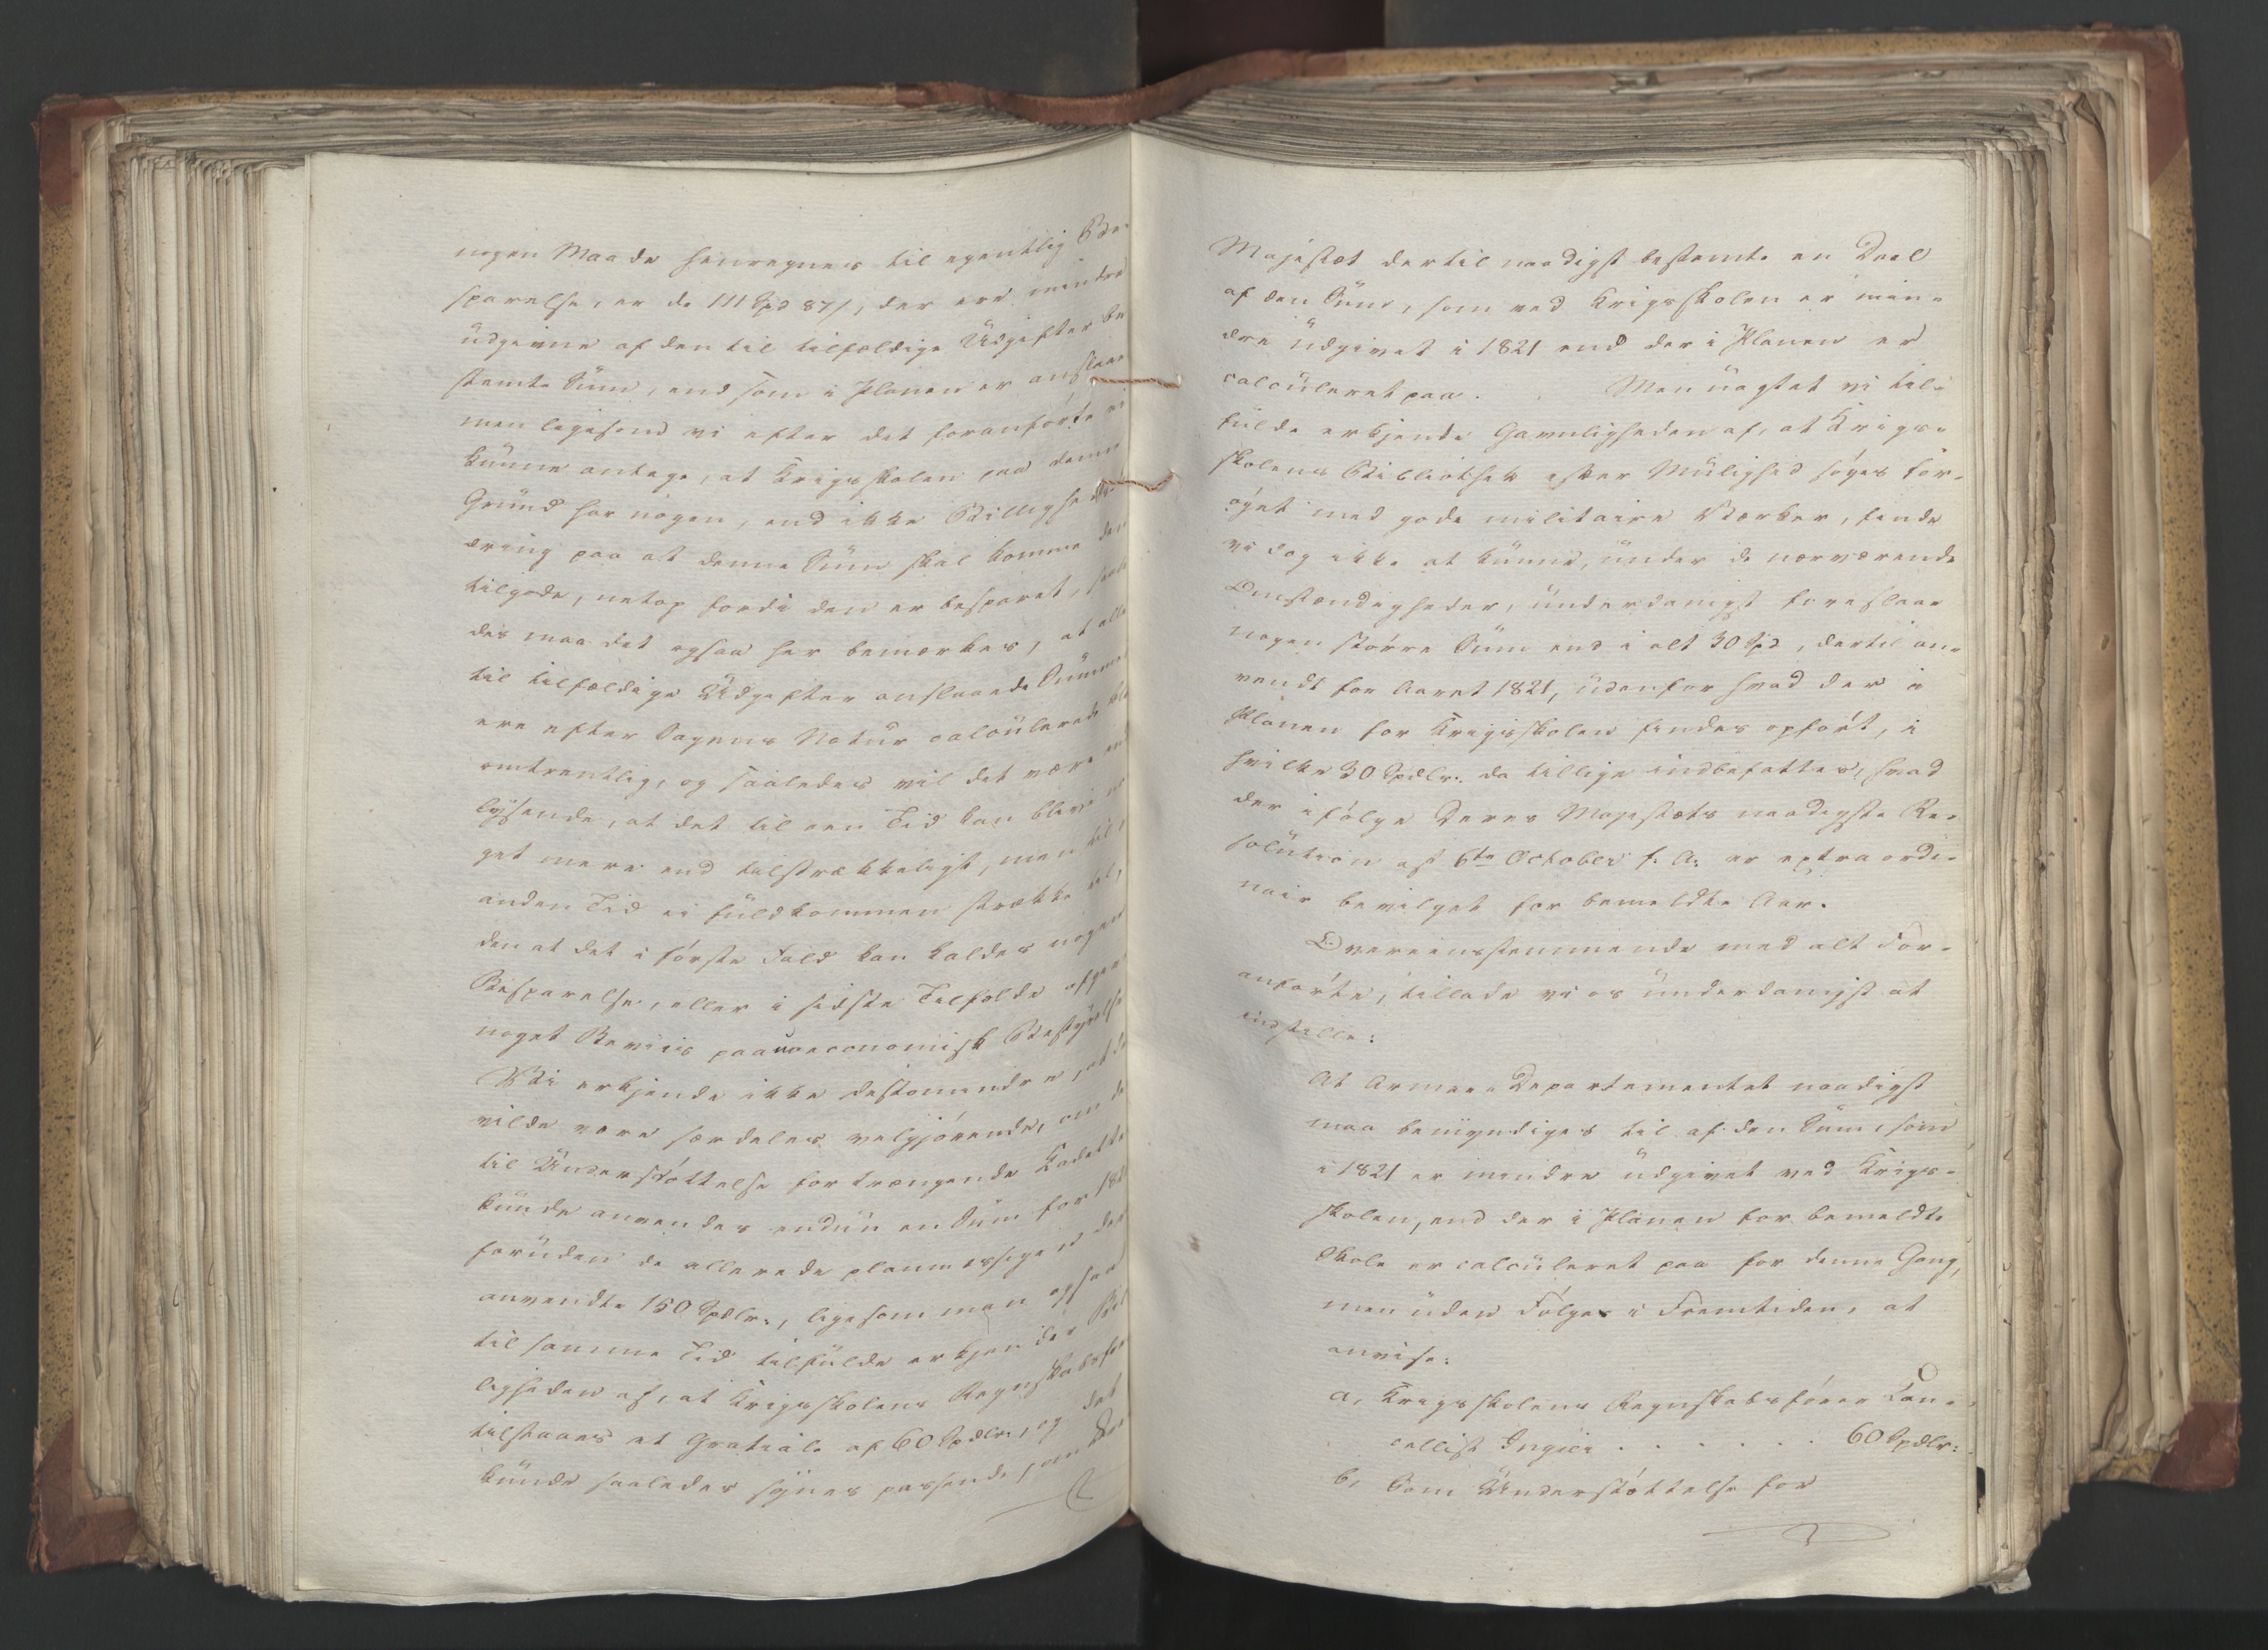 nogen Maade henregnes til egentlig Be-
sparelse, er de 111 Spd 87/, der ere mindre
udgivne af den til tilfældige Udgifter be
stemte Sum, end som i Planen er anslaaet
men ligesom vi efter det foranførte ei
kunne antage, at Krigsskolen paa denne
Grund har nogen, end ikke Billigheds
dring paa at denne Sum skal komme den
tilgode, netop fordi den er besparet, saale
des maa det ogsaa her bemærkes, at alle
til tilfældige Udgifter anslaaede Summer
ere efter Sagens Natur calculerede
omtrentlig, og saaledes vil det være ind
lysende, at det til een Tid kan blive no
get mere end tilstrækkeligt, men til
anden Tid ei fuldkommen strække til,
den at det i første Fald kan kaldes nogen
Besparelse, eller i sidste Tilfælde afgive
noget Beviis paa uoeconomisk Bestyrelse
Vi erkjende ikke destomindre, at det
vilde være særdeles velgjørende, om der
til Understøttelse for trængende Kadetter
kunde anvendes endnu en Sum for 1821
foruden de allerede planmæssigen der
anvendte 150 Spdlr:, ligesom man ogsaa
til samme Tid tilfulde erkjender Bil
ligheden af, at Krigsskolens Regnskabsfører
tilstaaes et Gratiale af 60 Spdlr:, og det
kunde saaledes synes passende, om Deres
Majestæt dertil naadigst bestemte en Deel
af den Sum, som ved Krigsskolen er min-
dre udgivet i 1821 end der i Planen er
calculeret paa. Men uagtet vi til-
fulde erkjende Gavnligheden af, at Krigs-
skolens Bibliothek efter Mulighed søges for-
øget med gode militaire Værker, finde
vi dog ikke at kunne, under de nærværende
Omstændigheder, underdanigst foreslaae
nogen større Sum end i alt 30 Spd, dertil an-
vendt for Aaret 1821, udenfor hvad der i
Planen for Krigsskolen findes opført, i
hvilke 30 Spdlr: da tillige indbefattes, hvad
der ifølge Deres Majestæts naadigste Re-
solution af 6te October f. A: er extraordi-
nair bevilget for bemeldte Aar.
Overeensstemmende med alt For-
anførte, tillade vi os underdanigst at
indstille:
At Armee-Departementet naadigst
maa bemyndiges til af den Sum, som
i 1821 er mindre udgivet ved Krigs-
skolen, end der i Planen for bemeldte
Skole er calculeret paa for denne Gang,
men uden Følger i Fremtiden, at
anvise:
a, Krigsskolens Regnskabsfører Can-
cellist Ingier . . . . . . 60 Spdlr:
b, Som Understøttelse for